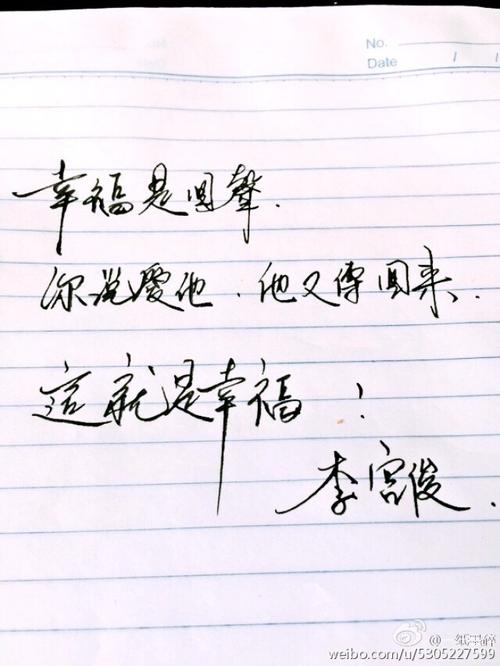 No.
Date / /
幸福是回聲.
你说愛他.他又傳回来.
這就是幸福!
李宫俊.
一纸墨醉
weibo.com/u/5305227599